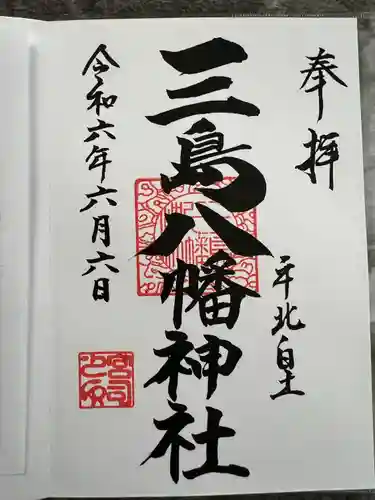 奉拝
三島八幡神社
令和六年六月六日